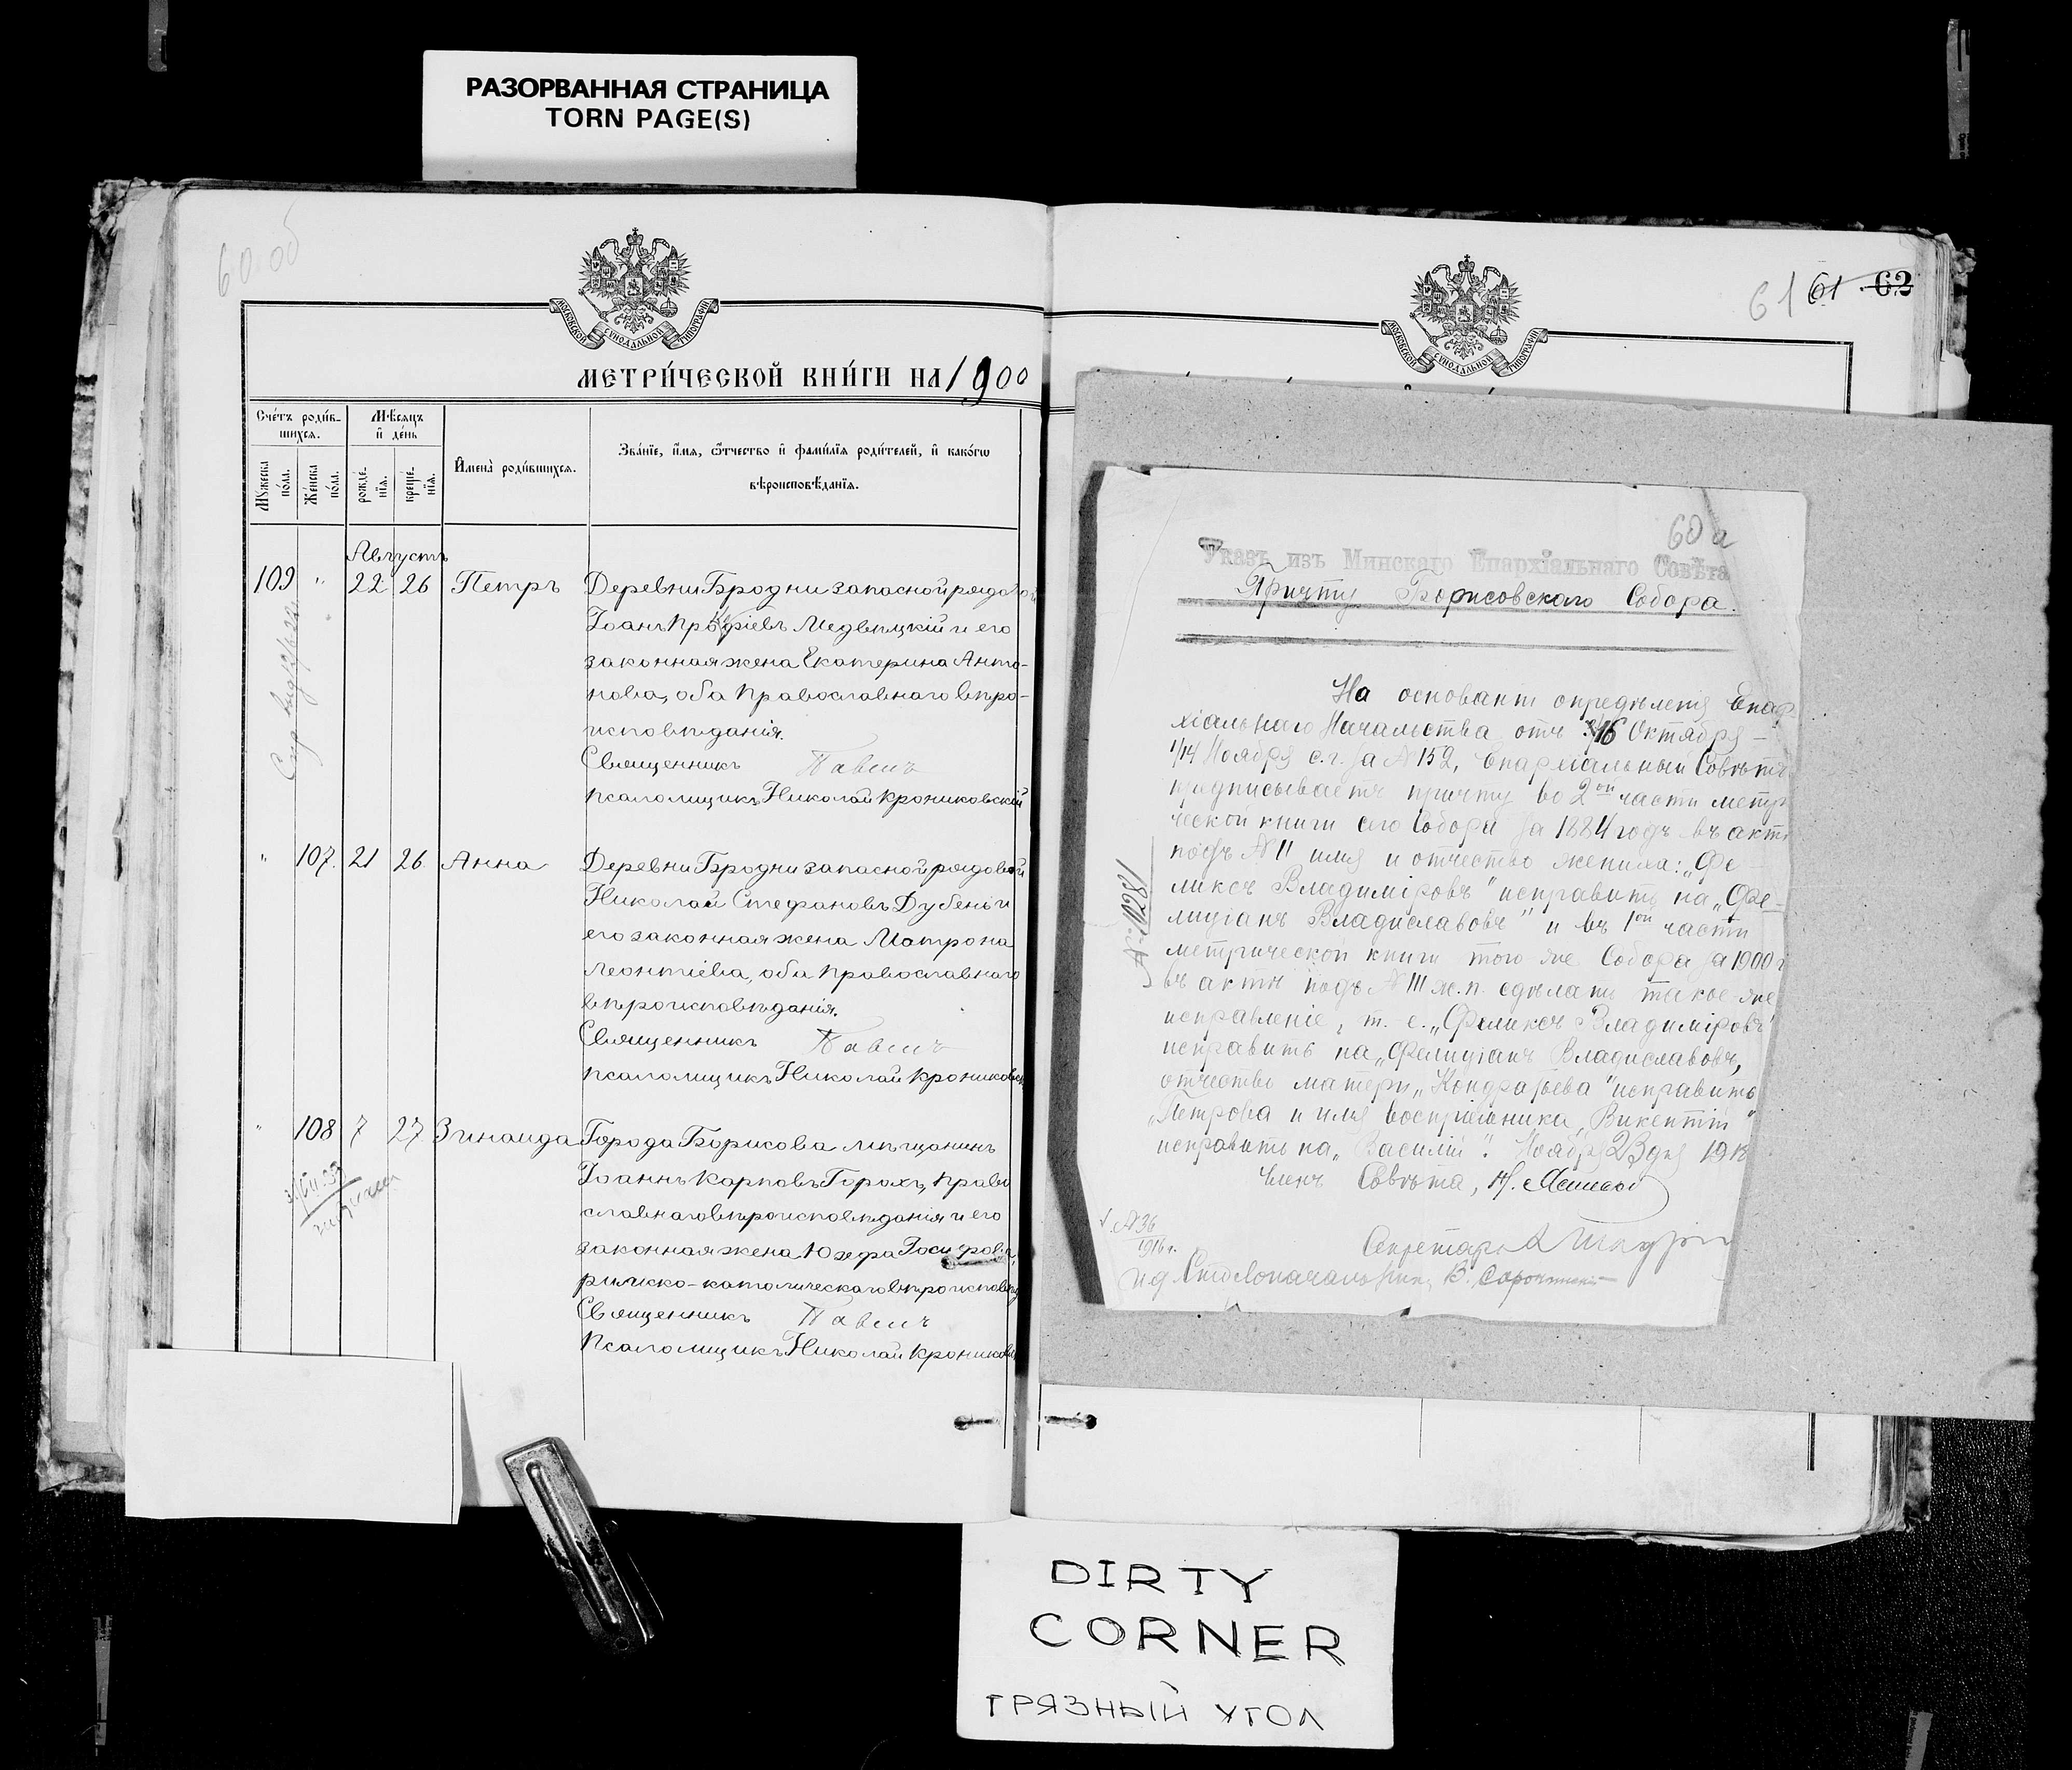 РАЗОРВАННАЯ СТРАНИЦА
TORN PAGE(S)
60 об
МОСКОВСКОЙ СУНОДАЛЬНОЙ ТИПОГРАФІИ
МЕТРИ́ЧЕСКОЙ КНИ́ГИ НА 1900
Сче́тъ роди́в-
шихся.
Мѣ́сяцъ
и҆ де́нь
Мꙋ́жеска
по́ла.
Же́нска
по́ла.
рожде́-
нїя.
креще́-
нїя.
И҆мена̀ роди́вшихся.
Зва́нїе, и҆́мя, ѻ҆́тчество и҆ фами́лїя роди́телей, и҆ како́гѡ
вѣроисповѣ́данїя.
Августъ
109 " 22 26 Петръ Деревни Бродни запасной рядовой
Іоанъ Медвѣцкій и его
законная жена Екатерина Анто-
нова, оба православнаго вѣро-
исповѣданія.
Священникъ
Псаломщикъ Николай Крониковскій
" 107. 21 26 Анна Деревни Бродни запасной рядовой
Николай Стефановъ Дубень и
его законная жена Матрона
Леонтіева, оба православнаго
вѣроисповѣданія.
Священникъ
Псаломщикъ Николай Крониковск
" 108 7 27 Зинаида Города Борисова мѣщанинъ
Іоаннъ Карповъ Горохъ, право
славнаго вѣроисповѣданія и его
законная жена Юзефа Іосифова,
римско-католическаго вѣроисповѣд
Священникъ
Псаломщикъ Николай Крониковск
МОСКОВСКОЙ СУНОДАЛЬНОЙ ТИПОГРАФІИ
61 61 62
60 а
Указъ изъ Минскаго Епархіальнаго Совѣта
Причту Борисовскаго Собора.
На основаніи опредѣленія Епар
хіальнаго Начальства отъ 3/16 Октября –
1/14 Ноября с.г. за № 152, Епархіальный Совѣтъ
предписываетъ причту во 2ой части метри
ческой книги его Собора за 1884 годъ въ актѣ
подъ № 11 имя и отчество жениха: „Фе
ликсъ Владиміровъ" исправить на „Фе-
лиціанъ Владиславовъ" и въ 1ой части
метрической книги того же Собора за 1900 г
въ актѣ подъ № 111 ж.п. сдѣлать такое же
исправленіе, т. е. „Феликсъ Владиміровъ"
исправить на „Фелиціанъ Владиславовъ,
отчество матери „Кондратьева" исправить
„Петрова и имя воспріемника „Викентій"
исправить на „Василій". Ноября 23 дня 1918
Членъ Совѣта,
№ 10281
Секретарь
№ 36
1916 г.
И.д. Столоначальника В.
DIRTY
CORNER
ГРЯЗНЫЙ УГОЛ